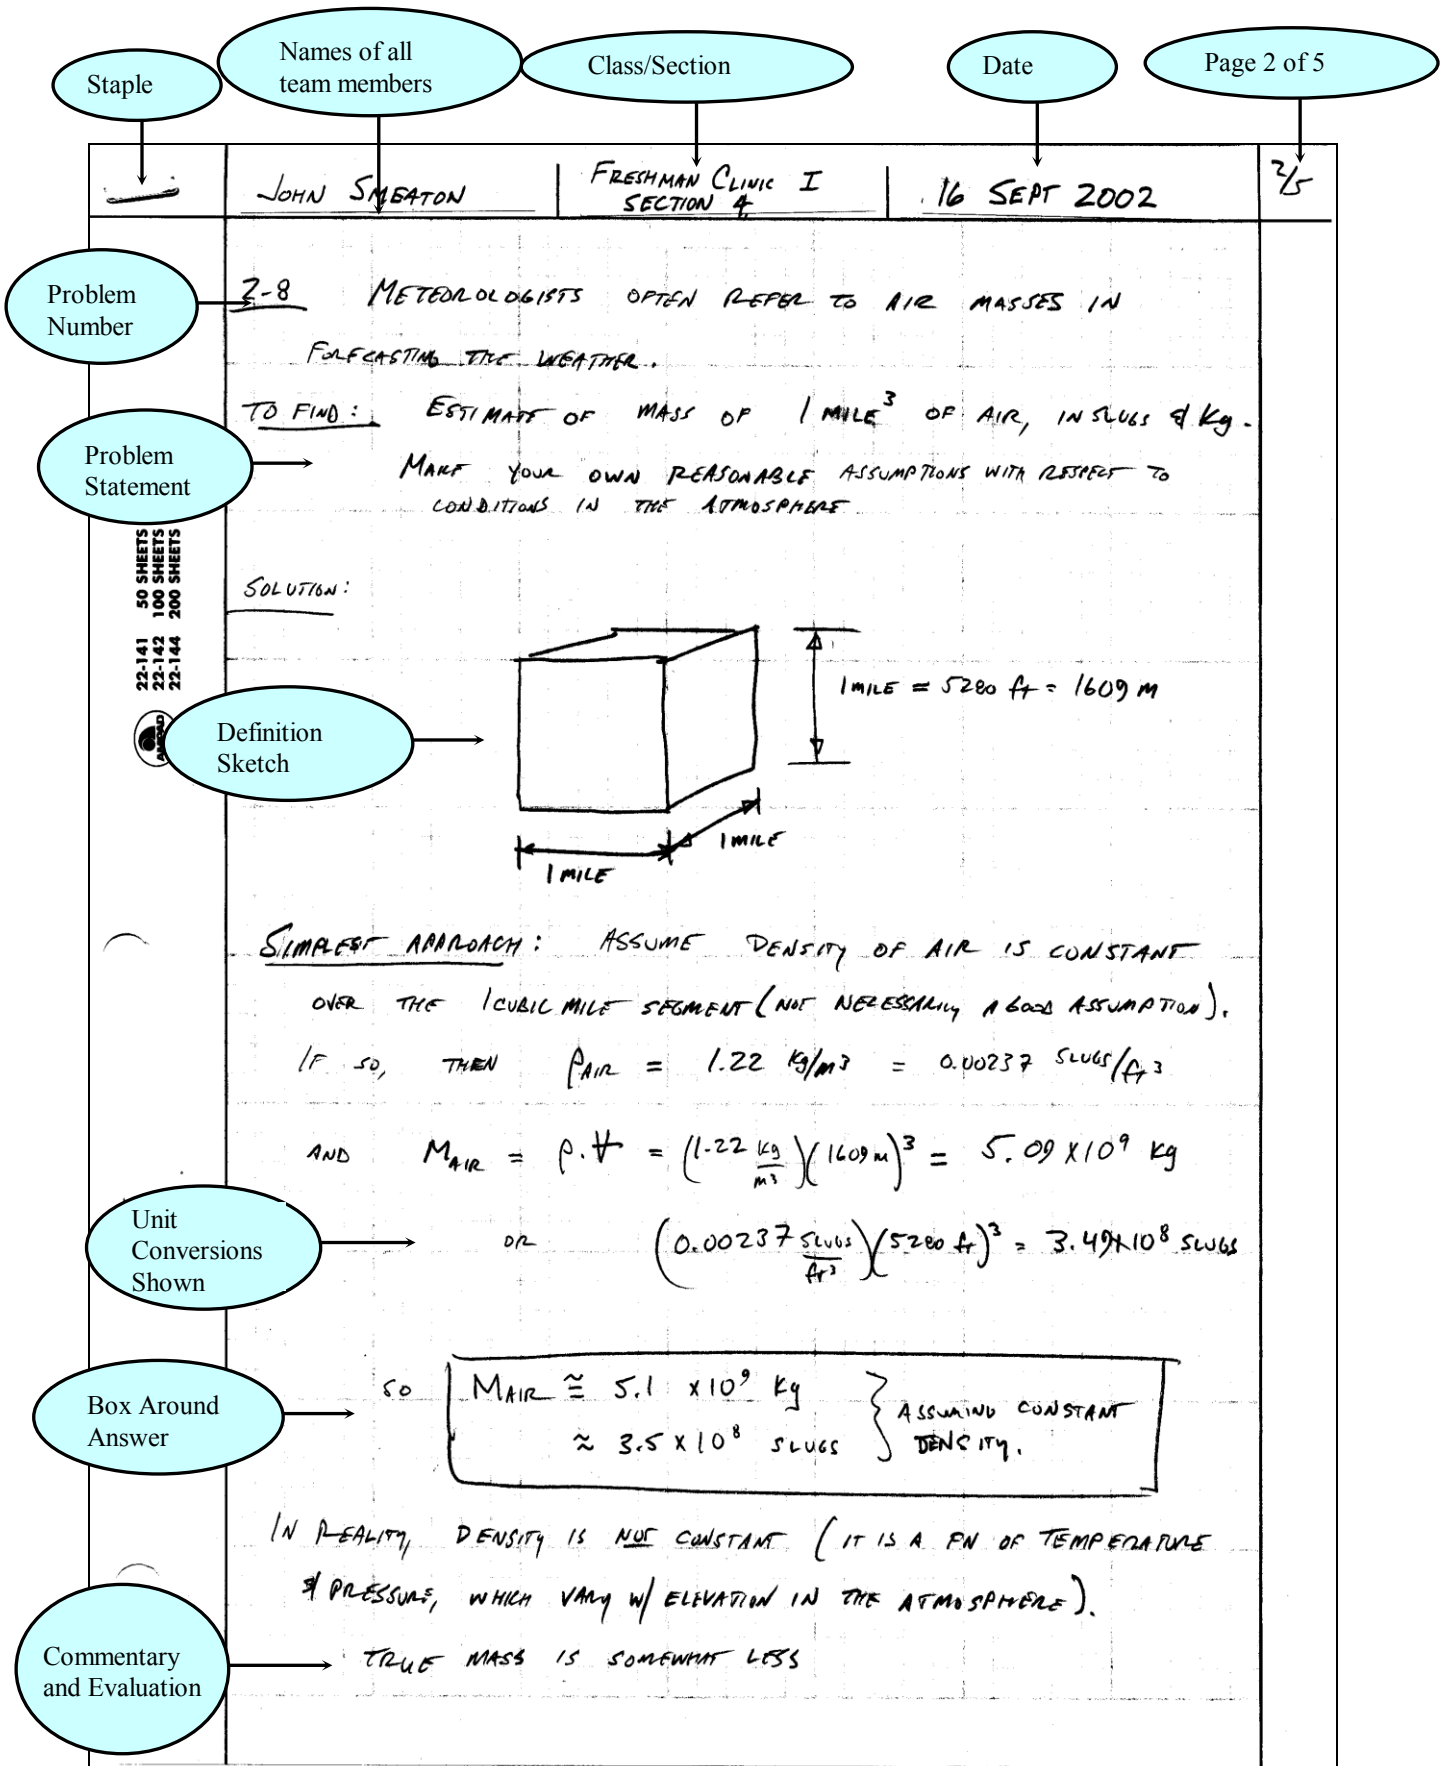 Staple
Names of all
team members
Class/Section
Date
Page 2 of 5
JOHN SMEATON
FRESHMAN CLINIC I
SECTION 4
16 SEPT 2002
2/5
Problem
Number
2-8 METEOROLOGISTS OFTEN REFER TO AIR MASSES IN
FORECASTING THE WEATHER.
TO FIND: ESTIMATE OF MASS OF 1 MILE³ OF AIR, IN SLUGS & Kg.
Problem
Statement
MAKE YOUR OWN REASONABLE ASSUMPTIONS WITH RESPECT TO
CONDITIONS IN THE ATMOSPHERE
22-141 50 SHEETS
22-142 100 SHEETS
22-144 200 SHEETS
AMPAD
SOLUTION:
1 MILE = 5280 ft = 1609 m
Definition
Sketch
1 MILE
1 MILE
SIMPLEST APPROACH: ASSUME DENSITY OF AIR IS CONSTANT
OVER THE 1 CUBIC MILE SEGMENT (NOT NECESSARILY A GOOD ASSUMPTION).
IF SO, THEN ρAIR = 1.22 Kg/m³ = 0.00237 SLUGS/ft³
AND MAIR = ρ.V = (1.22 kg/m³)(1609 m)³ = 5.09 X 10⁹ Kg
Unit
Conversions
Shown
OR (0.00237 SLUGS/ft³)(5280 ft)³ = 3.49 X 10⁸ SLUGS
Box Around
Answer
SO MAIR ≅ 5.1 X 10⁹ Kg
≈ 3.5 X 10⁸ SLUGS
} ASSUMING CONSTANT
DENSITY.
IN REALITY, DENSITY IS NOT CONSTANT (IT IS A FN OF TEMPERATURE
& PRESSURE, WHICH VARY W/ ELEVATION IN THE ATMOSPHERE).
Commentary
and Evaluation
TRUE MASS IS SOMEWHAT LESS